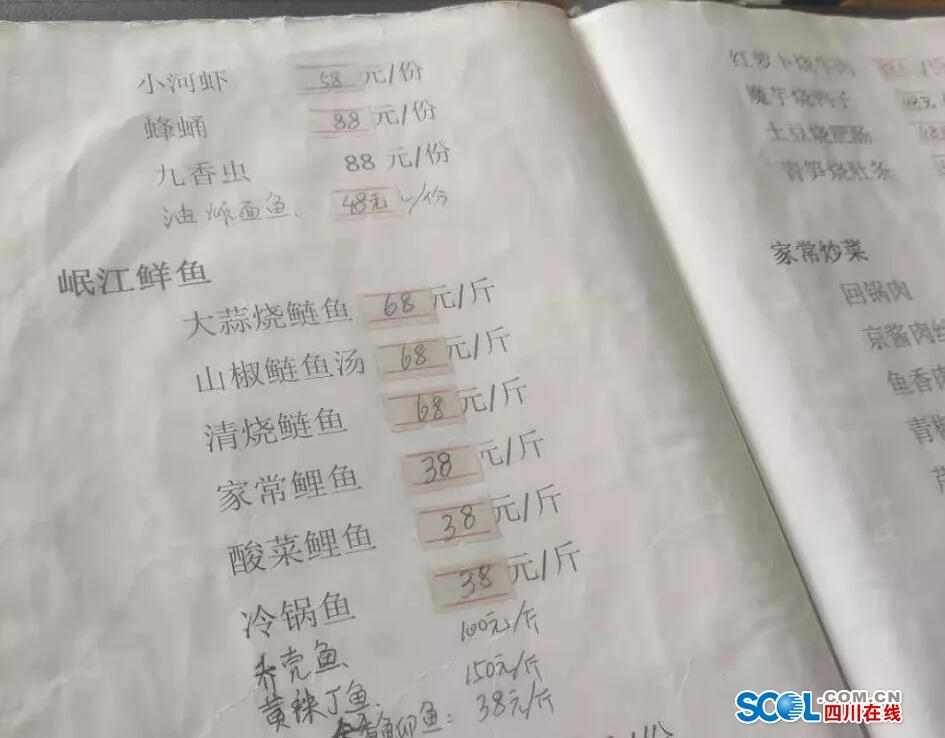 小河虾 58 元/份
蜂蛹 88 元/份
九香虫 88 元/份
油炸面鱼、 48元 /份
岷江鲜鱼
大蒜烧鲢鱼 68 元/斤
山椒鲢鱼汤 68 元/斤
清烧鲢鱼 68 元/斤
家常鲤鱼 38 元/斤
酸菜鲤鱼 38 元/斤
冷锅鱼 38 元/斤
乔壳鱼 100元/斤
黄辣丁鱼 150元/斤
鱼: 38元/斤
/份
红萝卜烧牛肉
魔芋烧鸭子
土豆烧肥肠
青笋烧肚条
家常炒菜
回锅肉
京酱肉
鱼香肉
青椒
SCOL.COM.CN
四川在线